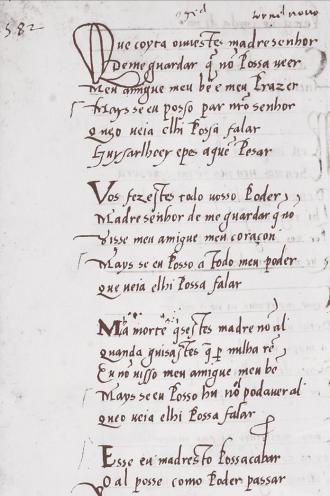 582
Que coyta ouuestes madre senhor
De me guardar q̃ nõ possa ueer
Meu amigue meu bẽ e meu prazer
Mays se eu posso par nr̃o senhor
Queo ueia e lhi possa falar
Guysarlheey e pes aque pesar
Vos fezestes todo uosso poder
Madre senhor de me guardar q̃ nõ
visse meu amigue meu coraçon
Mays se eu posso a todo meu poder
Que ueia e lhi possa falar
Mha morte q̃sestes madre nõ al
Quanda guisastes q̃ per nulha rẽ
Eu nõ uisso meu amigue meu bẽ
Mays se eu posso hu nõ podauer al
Queo ueia e lhi possa falar
E sse eu madresto possacabar
O al passe como poder passar